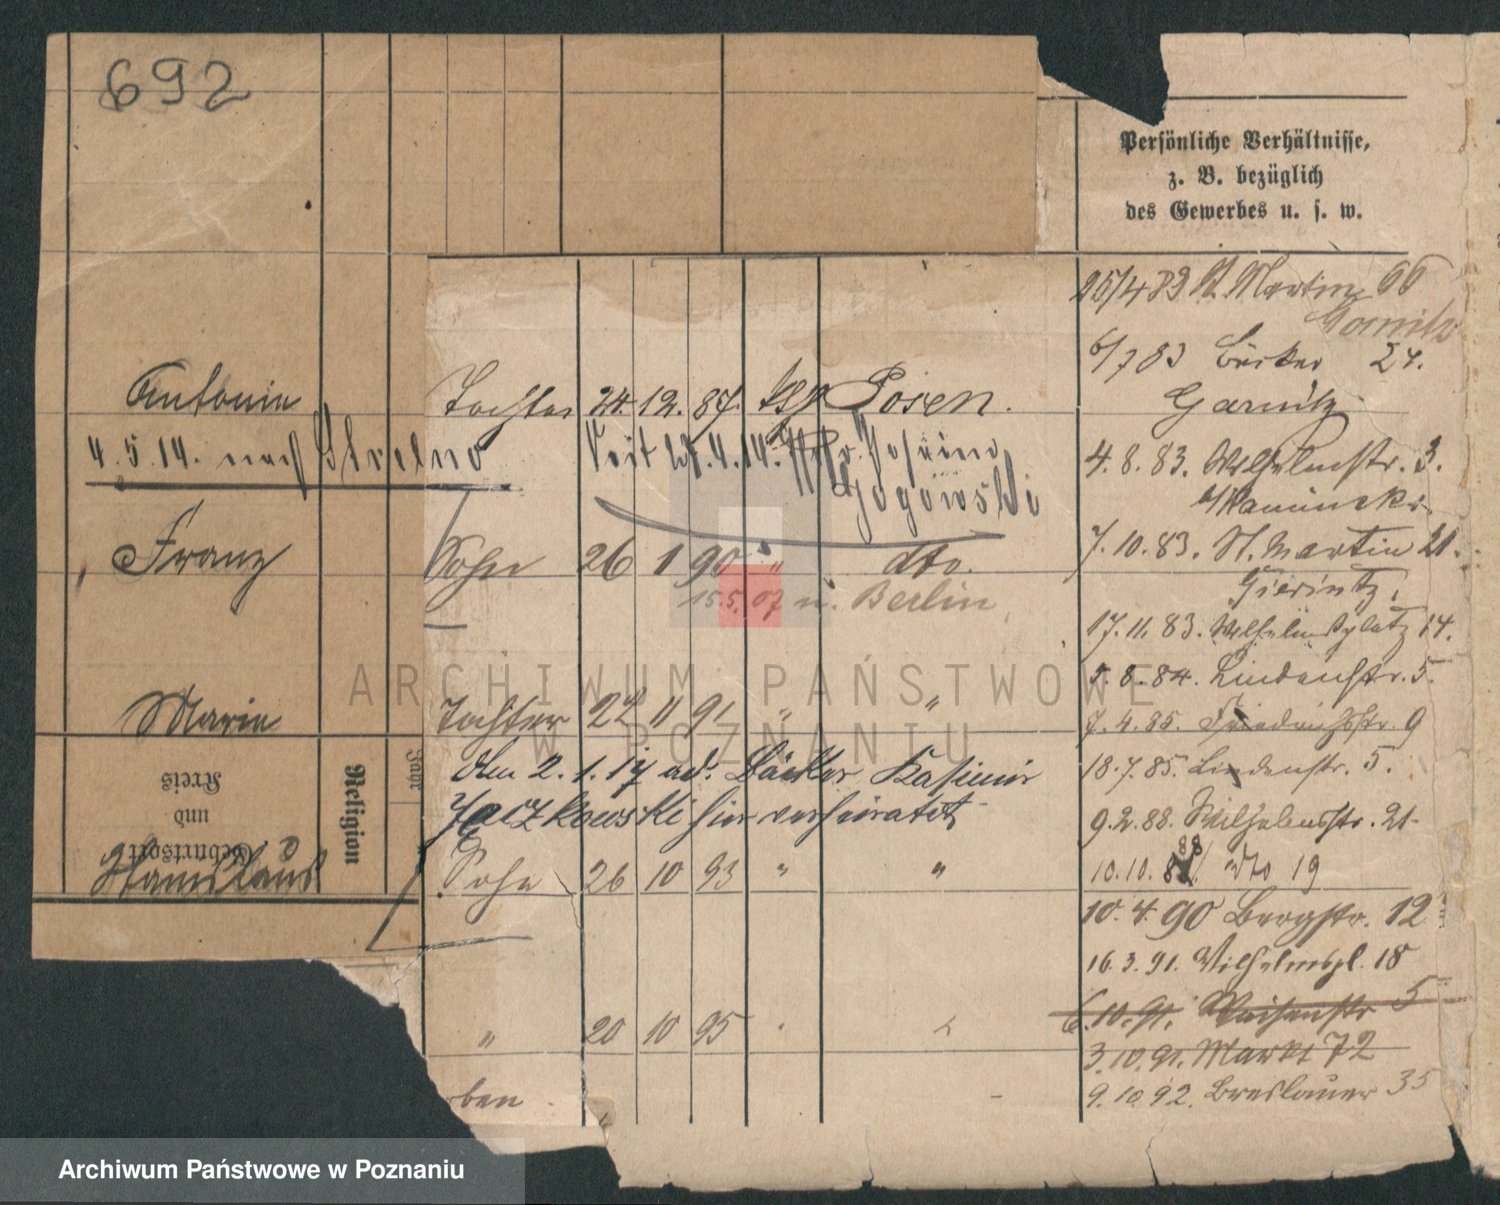 692
Persönliche Verhältnisse,
z. B. bezüglich
des Gewerbes u. s. w.
Antonie Tochter 24. 12. 87. Posen.
4. 5. 14. nach Strelno
Gogowski
Franz Sohn 26 1 90 " dto.
15.5.07 n. Berlin
Marie Tochter 22 11 91 " "
den 2. 1. 17 Bäcker Kasimir
Jaczkowski hier verheiratet
Stanislaus Sohn 26 10 93 " "
" 20 10 95
ben
Geburtsort
und
Kreis
Religion
Jahr
25/4 83 St. Martin 66
6/7 83 Bäcker 24.
4. 8. 83. Wilhelmstr. 3.
Kaminski.
7. 10. 83. St. Martin 21.
17. 11. 83. Wilhelmsplatz 14.
5. 8. 84. Lindenstr. 5.
7. 4. 85. Friedrichstr. 9
18. 7. 85. Lindenstr. 5.
9. 2. 88. Wilhelmstr. 21.
10. 10. 88 dto 19
10. 4. 90 Bergstr. 12
16. 3. 91. Wilhelmspl. 18
6. 10. 91. 5
3. 10. 91. Markt 72
9. 10 92. Breslauer 35
ARCHIWUM PAŃSTWOWE
W POZNANIU
Archiwum Państwowe w Poznaniu